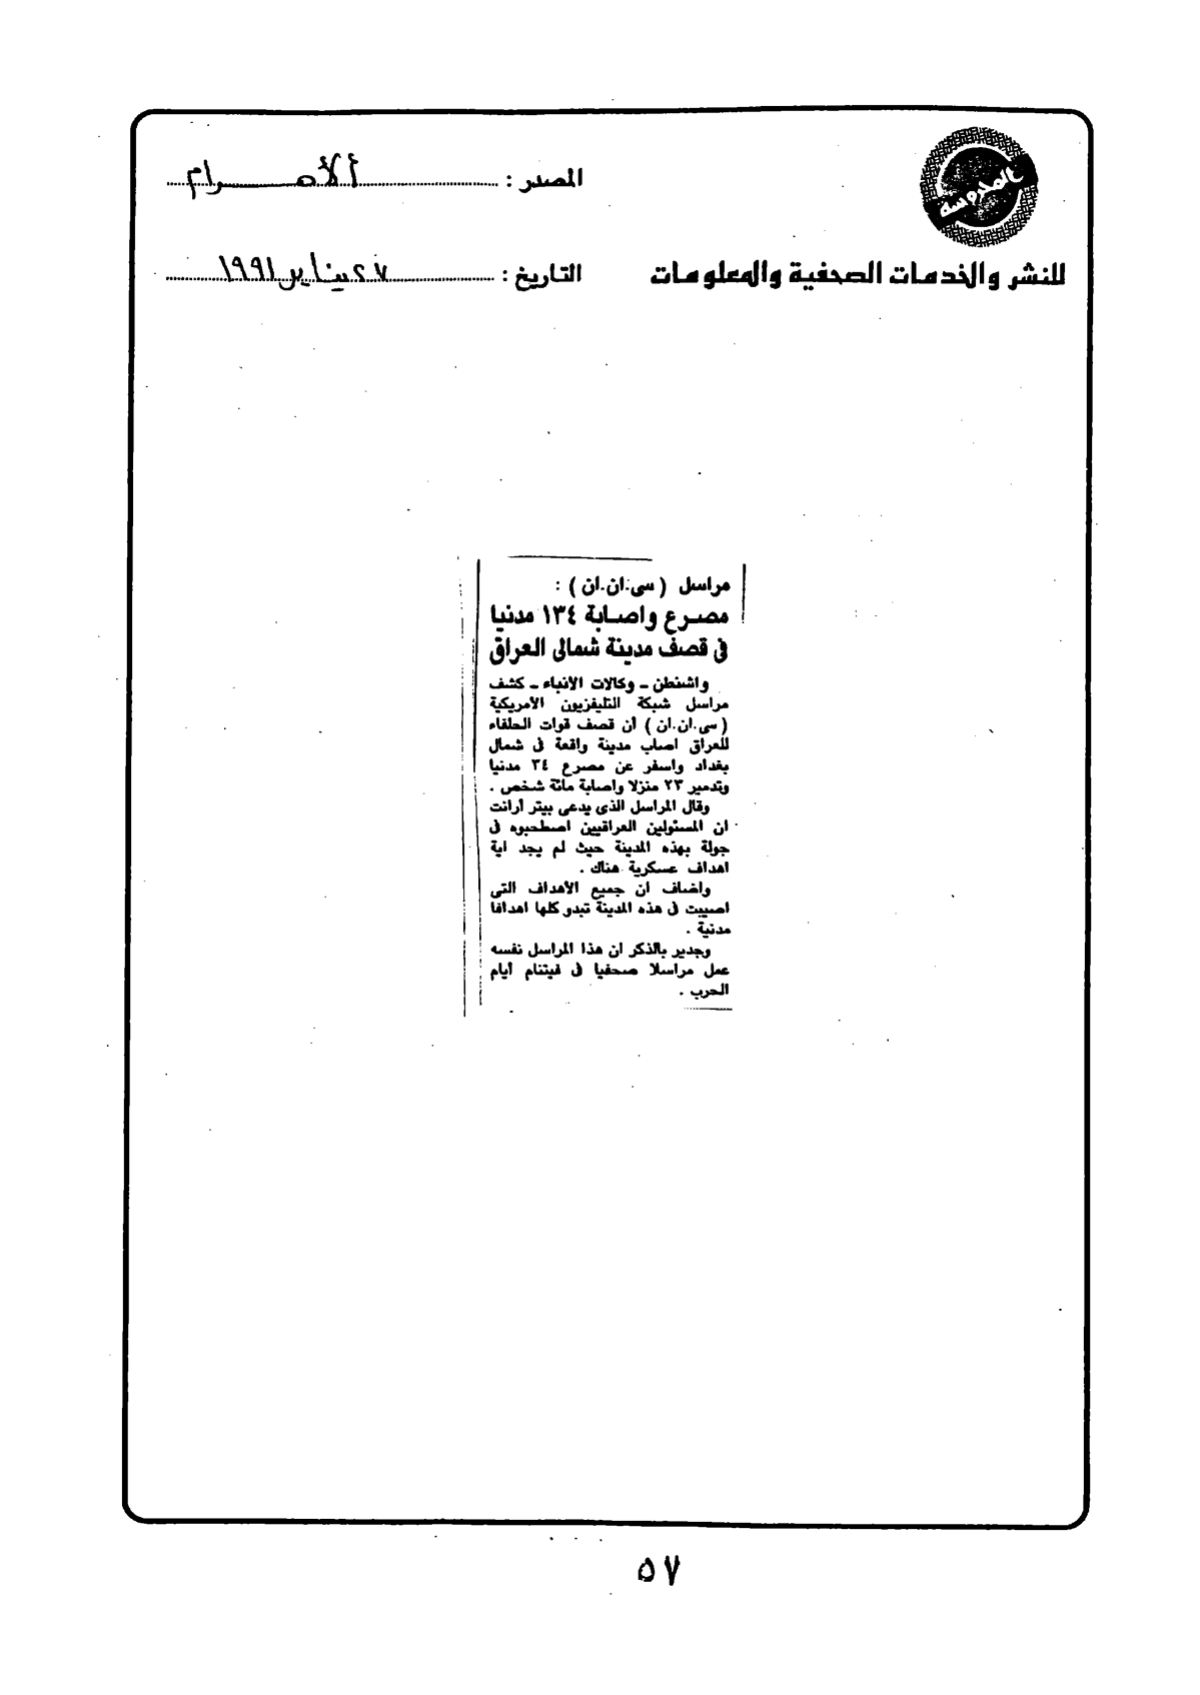 المحروسة
المصدر : الأهـــرام
للنشر والخدمات الصحفية والمعلومات
التاريخ : ٢٧ يناير ١٩٩١
مراسل ( سى.ان.ان ) :
مصرع واصابة ١٣٤ مدنيا
فى قصف مدينة شمالى العراق
واشنطن - وكالات الأنباء - كشف
مراسل شبكة التليفزيون الأمريكية
( سى.ان.ان ) أن قصف قوات الحلفاء
للعراق اصاب مدينة واقعة فى شمال
بغداد واسفر عن مصرع ٣٤ مدنيا
وتدمير ٢٣ منزلا واصابة مائة شخص .
وقال المراسل الذى يدعى بيتر أرانت
ان المسئولين العراقيين اصطحبوه فى
جولة بهذه المدينة حيث لم يجد اية
اهداف عسكرية هناك .
واضاف ان جميع الأهداف التى
اصيبت فى هذه المدينة تبدو كلها اهدافا
مدنية .
وجدير بالذكر ان هذا المراسل نفسه
عمل مراسلا صحفيا فى فيتنام أيام
الحرب .
٥٧